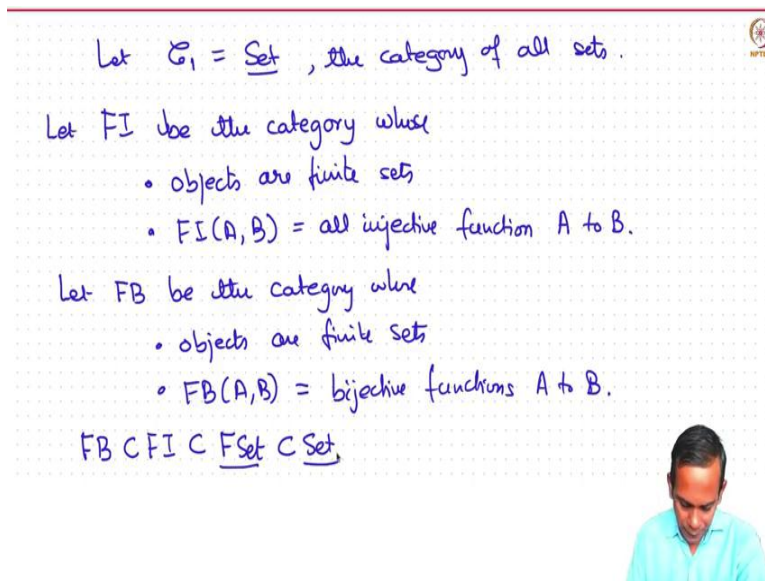 Let 𝒞₁ = Set , the category of all sets .
NPTEL
Let FI be the category whose
• objects are finite sets
• FI(A, B) = all injective function A to B.
Let FB be the category where
• objects are finite sets
• FB(A,B) = bijective functions A to B.
FB ⊂ FI ⊂ FSet ⊂ Set.